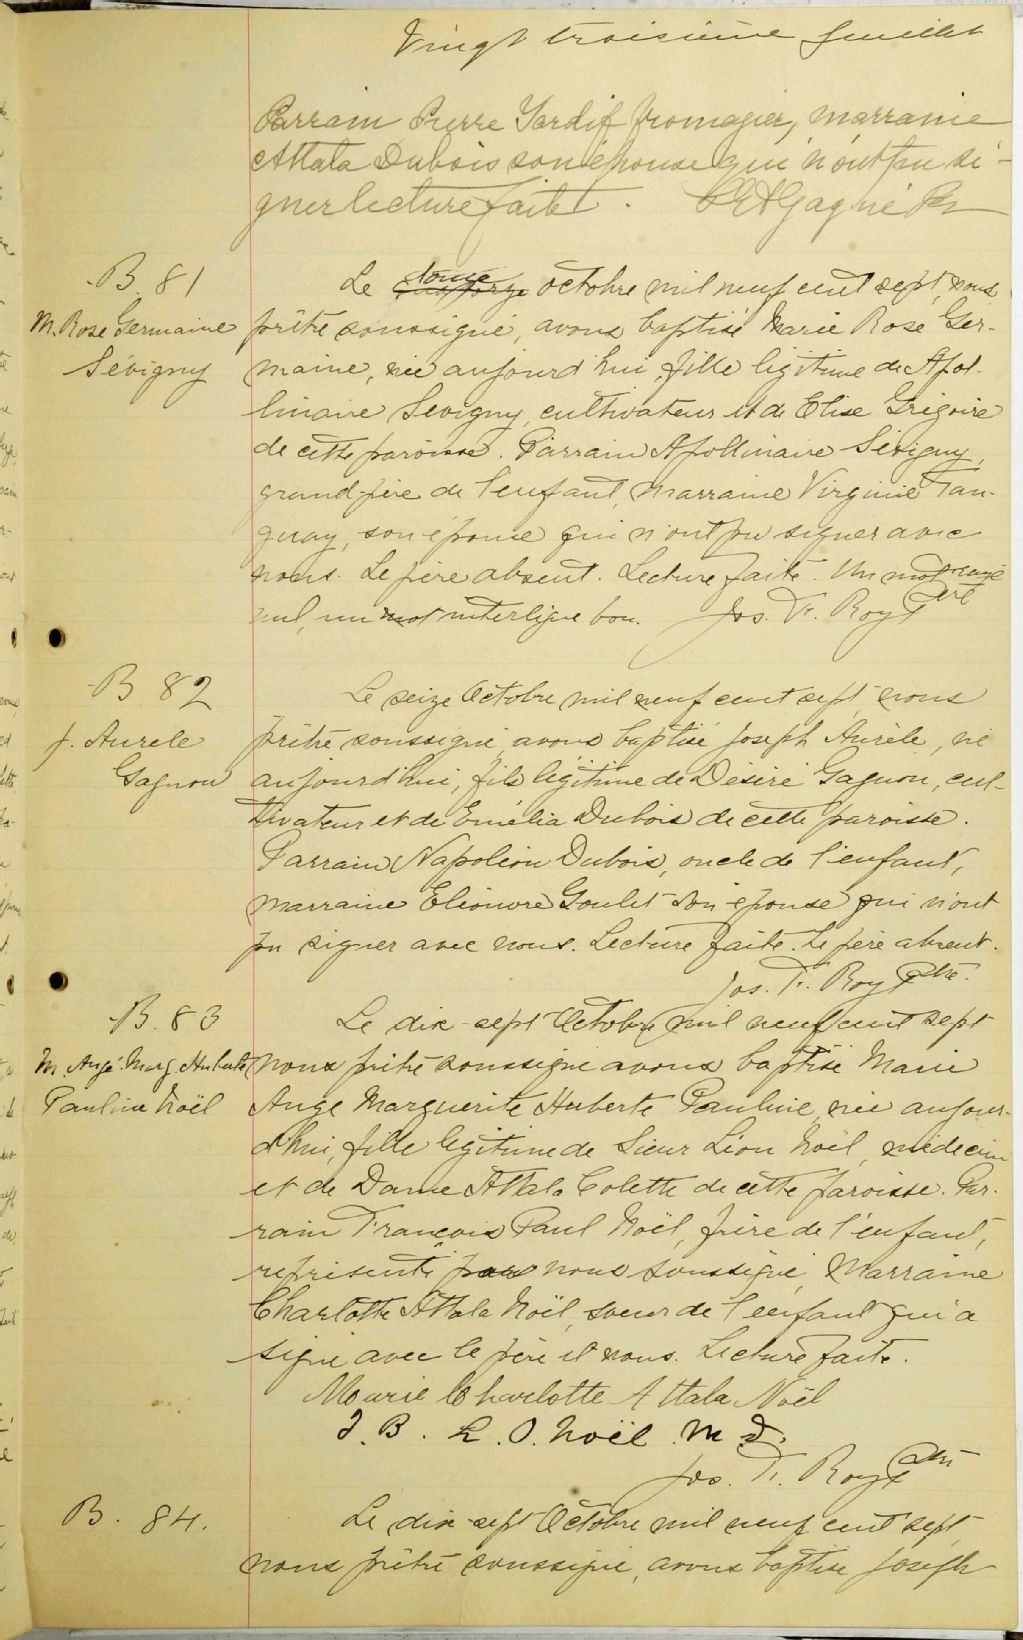 Vingt troisième feuillet
Parrain Pierre Tardif fromagier, marraine
Attala Dubois son épouse qui n'ont pu si-
gner lecture faite. Gagné Ptr
B. 81
M. Rose Germaine
Sévigny
Le douze octobre mil neuf cent sept, nous
prêtre soussigné, avons baptisé Marie Rose Ger-
maine, née aujourd'hui, fille légitime de Apol-
linaire Sevigny, cultivateur et de Elise Grégoire
de cette paroisse. Parrain Apollinaire Sévigny,
grand-père de l'enfant, marraine Virginie Tan-
guay, son épouse qui n'ont pu signer avec
nous. Le père absent. Lecture faite. Un mot rayé
nul, un mot interligne bon. Jos. Tr. Roy Ptre
B 82
J. Aurele
Gagnon
Le seize Octobre mil neuf cent sept, nous
prêtre soussigné avons baptisé Joseph Aurèle, né
aujourd'hui, fils légitime de Désiré Gagnon, cul-
tivateur et de Emélia Dubois de cette paroisse.
Parrain Napoléon Dubois, oncle de l'enfant,
marraine Eléonore Goulet son épouse qui n'ont
pu signer avec nous. Lecture faite. Le père absent.
Jos. Tr. Roy Ptre.
B. 83
M. Ange. Marg. Huberte
Pauline Noël
Le dix-sept Octobre mil neuf cent sept
nous prêtre soussigné avons baptisé Marie
Ange Marguerite Huberte Pauline, née aujour-
d'hui, fille légitime de Sieur Léon Noël, médecin
et de Dame Attala Colette de cette paroisse. Par-
rain François Paul Noël, frère de l'enfant,
représenté par nous soussigné, Marraine
Charlotte Attala Noël, soeur de l'enfant qui a
signé avec le père et nous. Lecture faite.
Marie Charlotte Attala Noël
J. B. L. O. Noël M D.
Jos. Tr. Roy Ptre
B. 84.
Le dix-sept Octobre mil neuf cent sept,
nous prêtre soussigné, avons baptisé Joseph